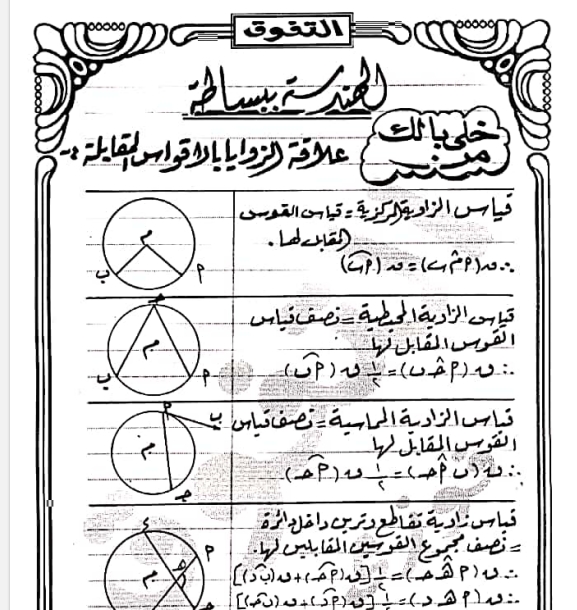 التفوق
الهندسة ببساطة
خلى بالك
من
علاقة الزوايا بالاقواس المقابلة :-
قياس الزاوية المركزية = قياس القوس
المقابل لها.
∴ ق(م̂ ب) = ق(أب)
م
ب
أ
قياس الزاوية المحيطية = نصف قياس
القوس المقابل لها
∴ ق(أ ح̂ ب) = ١/٢ ق(أب)
ح
م
ب
أ
قياس الزاوية المماسية = نصف قياس
القوس المقابل لها
∴ ق(ب أ̂ ح) = ١/٢ ق(أح)
أ
ب
م
ح
قياس زاوية تقاطع وترين داخل دائرة
= نصف مجموع القوسين المقابلين لها.
∴ ق(أ ه̂ ح) = ١/٢ [ق(أح) + ق(ب د)]
ء
أ
ه
م